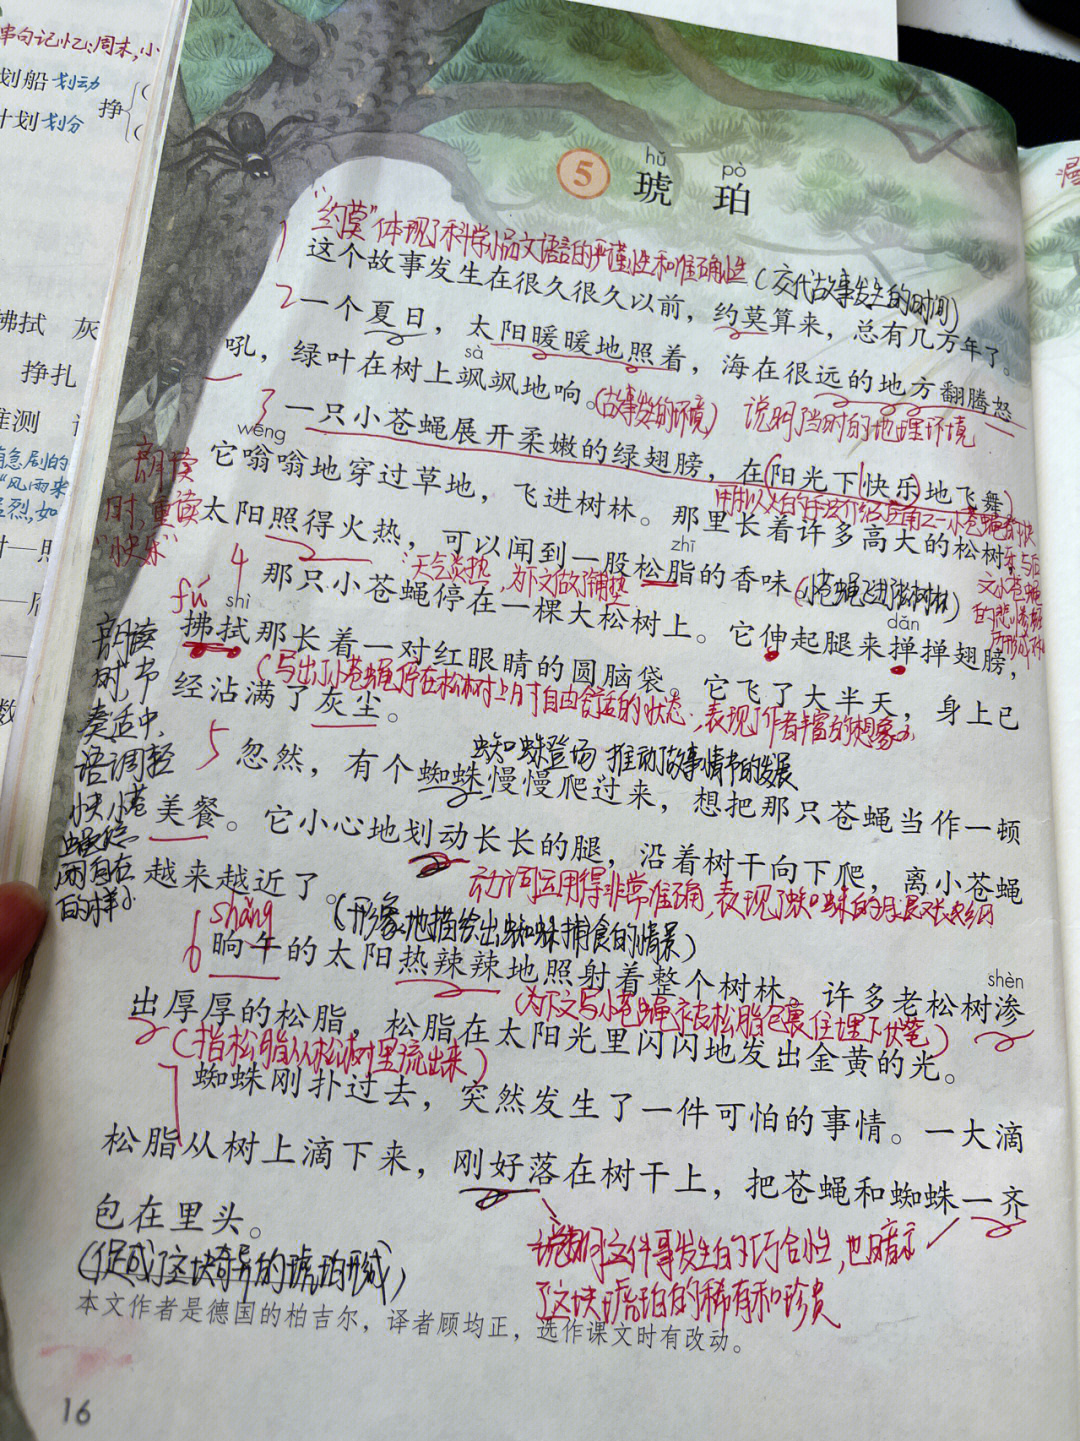 串句记忆:周末,小
划船 划动
挣
计划 划分
拂拭 灰
挣扎
准测
急剧的
“风雨来
烈,如
数
hǔ pò
5 琥 珀
“约莫”体现了科学小品文语言的严谨性和准确性
1 这个故事发生在很久很久以前,约莫算来,总有几万年了。
(交代故事发生的时间)
2 一个夏日,太阳暖暖地照着,海在很远的地方翻腾怒
sà
吼,绿叶在树上飒飒地响。
(故事发生的环境) 说明了当时的地理环境
3 一只小苍蝇展开柔嫩的绿翅膀,在阳光下快乐地飞舞。
wēng
它嗡嗡地穿过草地,飞进树林。那里长着许多高大的松树,
zhī
太阳照得火热,可以闻到一股松脂的香味。
天气炎热,为下文做了铺垫
(小苍蝇飞进松树林)
朗读
时,重读
“快乐”
4 那只小苍蝇停在一棵大松树上。它伸起腿来掸掸翅膀,
dǎn
fú shì
拂拭那长着一对红眼睛的圆脑袋。它飞了大半天,身上已
(写出了小苍蝇停在松树上时自由舒适的状态,表现了作者丰富的想象力
经沾满了灰尘。
朗读
时,节
奏适中,
语调轻
快
的样子
蜘蛛登场 推动故事情节的发展
5 忽然,有个蜘蛛慢慢爬过来,想把那只苍蝇当作一顿
美餐。它小心地划动长长的腿,沿着树干向下爬,离小苍蝇
越来越近了。
动词运用得非常准确,表现了蜘蛛的
(形象地描绘出蜘蛛捕食的情景)
shǎng
6 晌午的太阳热辣辣地照射着整个树林。许多老松树渗
shèn
出厚厚的松脂,松脂在太阳光里闪闪地发出金黄的光。
(为下文写小苍蝇被松脂包裹住埋下伏笔)
(指松脂从松树里流出来)
7 蜘蛛刚扑过去,突然发生了一件可怕的事情。一大滴
松脂从树上滴下来,刚好落在树干上,把苍蝇和蜘蛛一齐
包在里头。
(促成了这块奇异的琥珀形成)
说明这件事发生的巧合性,也暗示
了这块琥珀的稀有和珍贵
本文作者是德国的柏吉尔,译者顾均正,选作课文时有改动。
16